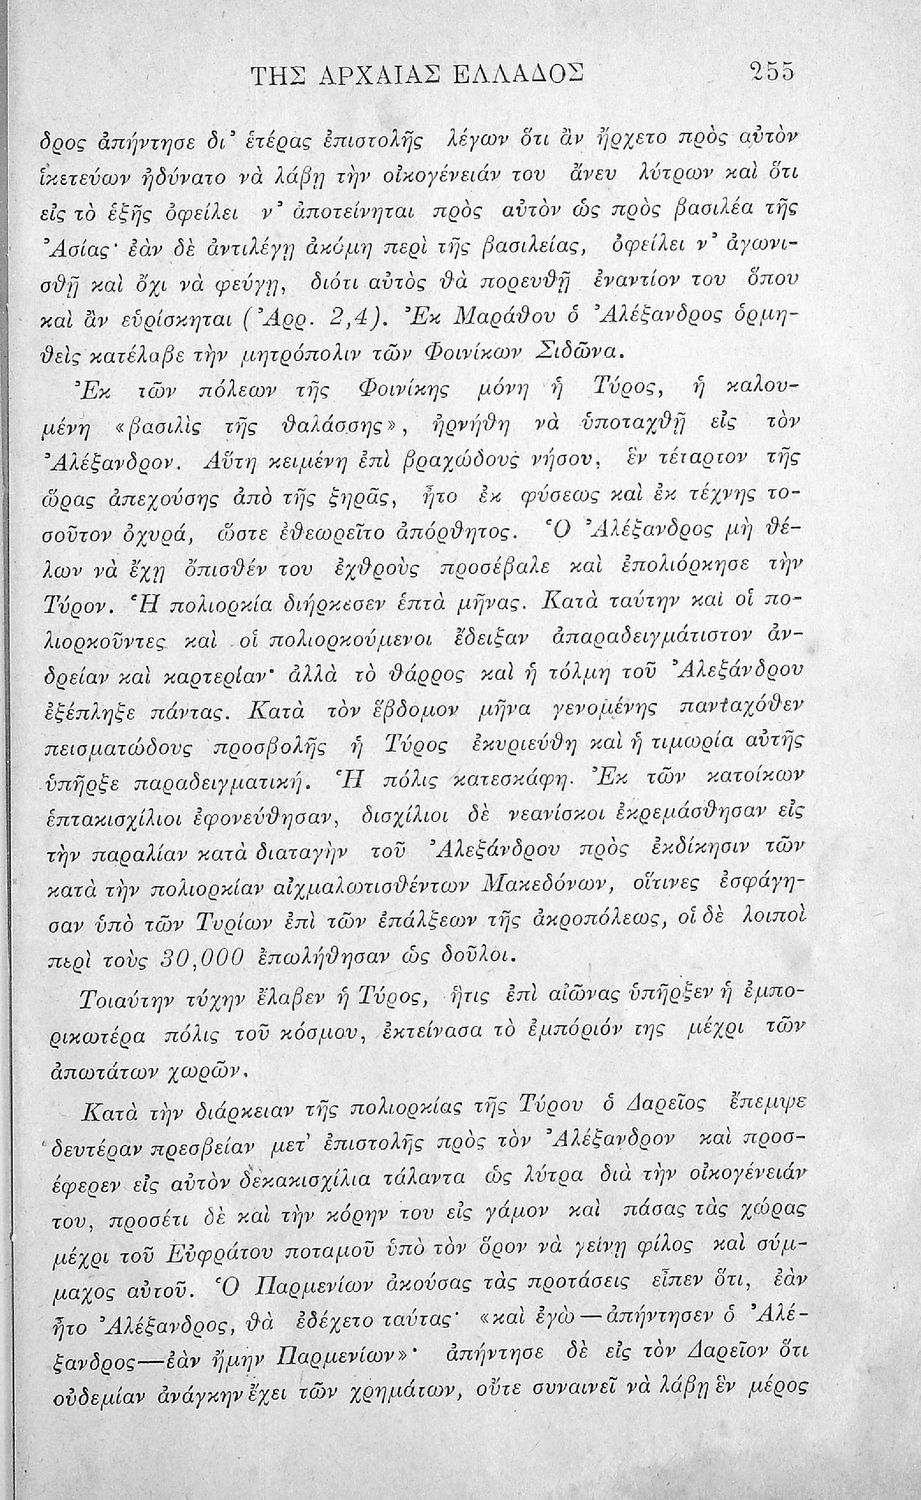 ΤΗΣ ΑΡΧΑΙΑΣ ΕΛΛΑΔΟΣ 255
δρος ἀπήντησε δι᾽ ἑτέρας ἐπιστολῆς λέγων ὅτι ἂν ἤρχετο πρὸς αὐτὸν
ἱκετεύων ἠδύνατο νὰ λάβῃ τὴν οἰκογένειάν του ἄνευ λύτρων καὶ ὅτι
εἰς τὸ ἑξῆς ὀφείλει ν᾽ ἀποτείνηται πρὸς αὐτὸν ὡς πρὸς βασιλέα τῆς
Ἀσίας· ἐὰν δὲ ἀντιλέγῃ ἀκόμη περὶ τῆς βασιλείας, ὀφείλει ν᾽ ἀγωνι-
σθῇ καὶ ὄχι νὰ φεύγῃ, διότι αὐτὸς θὰ πορευθῇ ἐναντίον του ὅπου
καὶ ἂν εὑρίσκηται (Ἀρρ. 2,4). Ἐκ Μαράθου ὁ Ἀλέξανδρος ὁρμη-
θεὶς κατέλαβε τὴν μητρόπολιν τῶν Φοινίκων Σιδῶνα.
Ἐκ τῶν πόλεων τῆς Φοινίκης μόνη ἡ Τύρος, ἡ καλου-
μένη «βασιλὶς τῆς θαλάσσης», ἠρνήθη νὰ ὑποταχθῇ εἰς τὸν
Ἀλέξανδρον. Αὕτη κειμένη ἐπὶ βραχώδους νήσου, ἓν τέταρτον τῆς
ὥρας ἀπεχούσης ἀπὸ τῆς ξηρᾶς, ἦτο ἐκ φύσεως καὶ ἐκ τέχνης το-
σοῦτον ὀχυρά, ὥστε ἐθεωρεῖτο ἀπόρθητος. Ὁ Ἀλέξανδρος μὴ θέ-
λων νὰ ἔχῃ ὄπισθέν του ἐχθροὺς προσέβαλε καὶ ἐπολιόρκησε τὴν
Τύρον. Ἡ πολιορκία διήρκεσεν ἑπτὰ μῆνας. Κατὰ ταύτην καὶ οἱ πο-
λιορκοῦντες καὶ οἱ πολιορκούμενοι ἔδειξαν ἀπαραδειγμάτιστον ἀν-
δρείαν καὶ καρτερίαν· ἀλλὰ τὸ θάρρος καὶ ἡ τόλμη τοῦ Ἀλεξάνδρου
ἐξέπληξε πάντας. Κατὰ τὸν ἕβδομον μῆνα γενομένης πανταχόθεν
πεισματώδους προσβολῆς ἡ Τύρος ἐκυριεύθη καὶ ἡ τιμωρία αὐτῆς
ὑπῆρξε παραδειγματική. Ἡ πόλις κατεσκάφη. Ἐκ τῶν κατοίκων
ἑπτακισχίλιοι ἐφονεύθησαν, δισχίλιοι δὲ νεανίσκοι ἐκρεμάσθησαν εἰς
τὴν παραλίαν κατὰ διαταγὴν τοῦ Ἀλεξάνδρου πρὸς ἐκδίκησιν τῶν
κατὰ τὴν πολιορκίαν αἰχμαλωτισθέντων Μακεδόνων, οἵτινες ἐσφάγη-
σαν ὑπὸ τῶν Τυρίων ἐπὶ τῶν ἐπάλξεων τῆς ἀκροπόλεως, οἱ δὲ λοιποὶ
περὶ τοὺς 30,000 ἐπωλήθησαν ὡς δοῦλοι.
Τοιαύτην τύχην ἔλαβεν ἡ Τύρος, ἥτις ἐπὶ αἰῶνας ὑπῆρξεν ἡ ἐμπο-
ρικωτέρα πόλις τοῦ κόσμου, ἐκτείνασα τὸ ἐμπόριόν της μέχρι τῶν
ἀπωτάτων χωρῶν.
Κατὰ τὴν διάρκειαν τῆς πολιορκίας τῆς Τύρου ὁ Δαρεῖος ἔπεμψε
δευτέραν πρεσβείαν μετ᾽ ἐπιστολῆς πρὸς τὸν Ἀλέξανδρον καὶ προσ-
έφερεν εἰς αὐτὸν δεκακισχίλια τάλαντα ὡς λύτρα διὰ τὴν οἰκογένειάν
του, προσέτι δὲ καὶ τὴν κόρην του εἰς γάμον καὶ πάσας τὰς χώρας
μέχρι τοῦ Εὐφράτου ποταμοῦ ὑπὸ τὸν ὅρον νὰ γείνῃ φίλος καὶ σύμ-
μαχος αὐτοῦ. Ὁ Παρμενίων ἀκούσας τὰς προτάσεις εἶπεν ὅτι, ἐὰν
ἦτο Ἀλέξανδρος, θὰ ἐδέχετο ταύτας· «καὶ ἐγὼ—ἀπήντησεν ὁ Ἀλέ-
ξανδρος—ἐὰν ἤμην Παρμενίων»· ἀπήντησε δὲ εἰς τὸν Δαρεῖον ὅτι
οὐδεμίαν ἀνάγκην ἔχει τῶν χρημάτων, οὔτε συναινεῖ νὰ λάβῃ ἓν μέρος